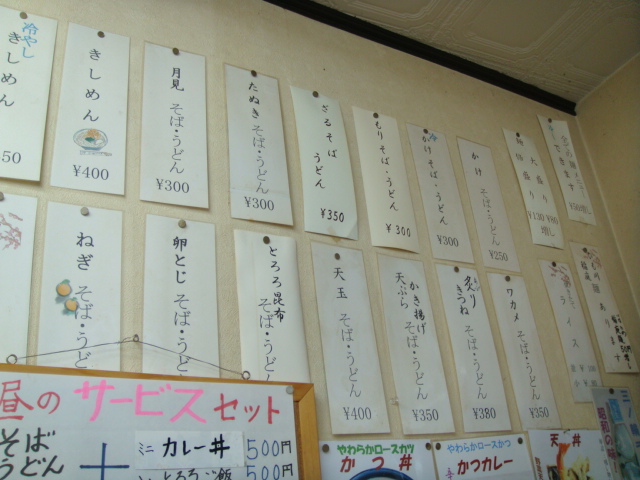 冷やし きしめん
50
きしめん
¥400
月見 そば・うどん
¥300
たぬき そば・うどん
¥300
ざるそば うどん
¥350
もりそば・うどん
¥300
かけそば・うどん
¥300
かけ そば・うどん
¥250
大盛り
¥130
¥50増し
ねぎ そば・うど
卵とじ そば・うど
とろろ昆布 そば・う
天玉 そば・うどん
¥400
かき揚げ 天ぷら そば・うどん
¥350
炙りきつね そば・うどん
¥380
ワカメ そば・うどん
¥350
ライス
あります
昼のサービスセット
そば うどん
+
ミニ カレー丼 500円
とろろご飯 500円
やわらかロースカツ
かつ丼
やわらかロースかつ
かつカレー
天丼
昭和の